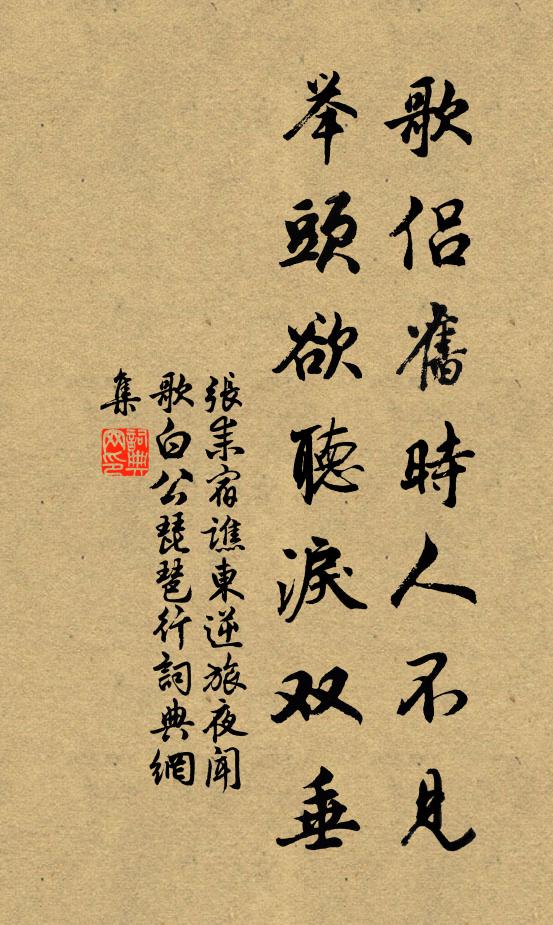 歌侣舊時人不見
举頭欲聽淚双垂
張耒宿譙東逆旅夜聞
歌白公琵琶行詞典網
集
詞典
网印